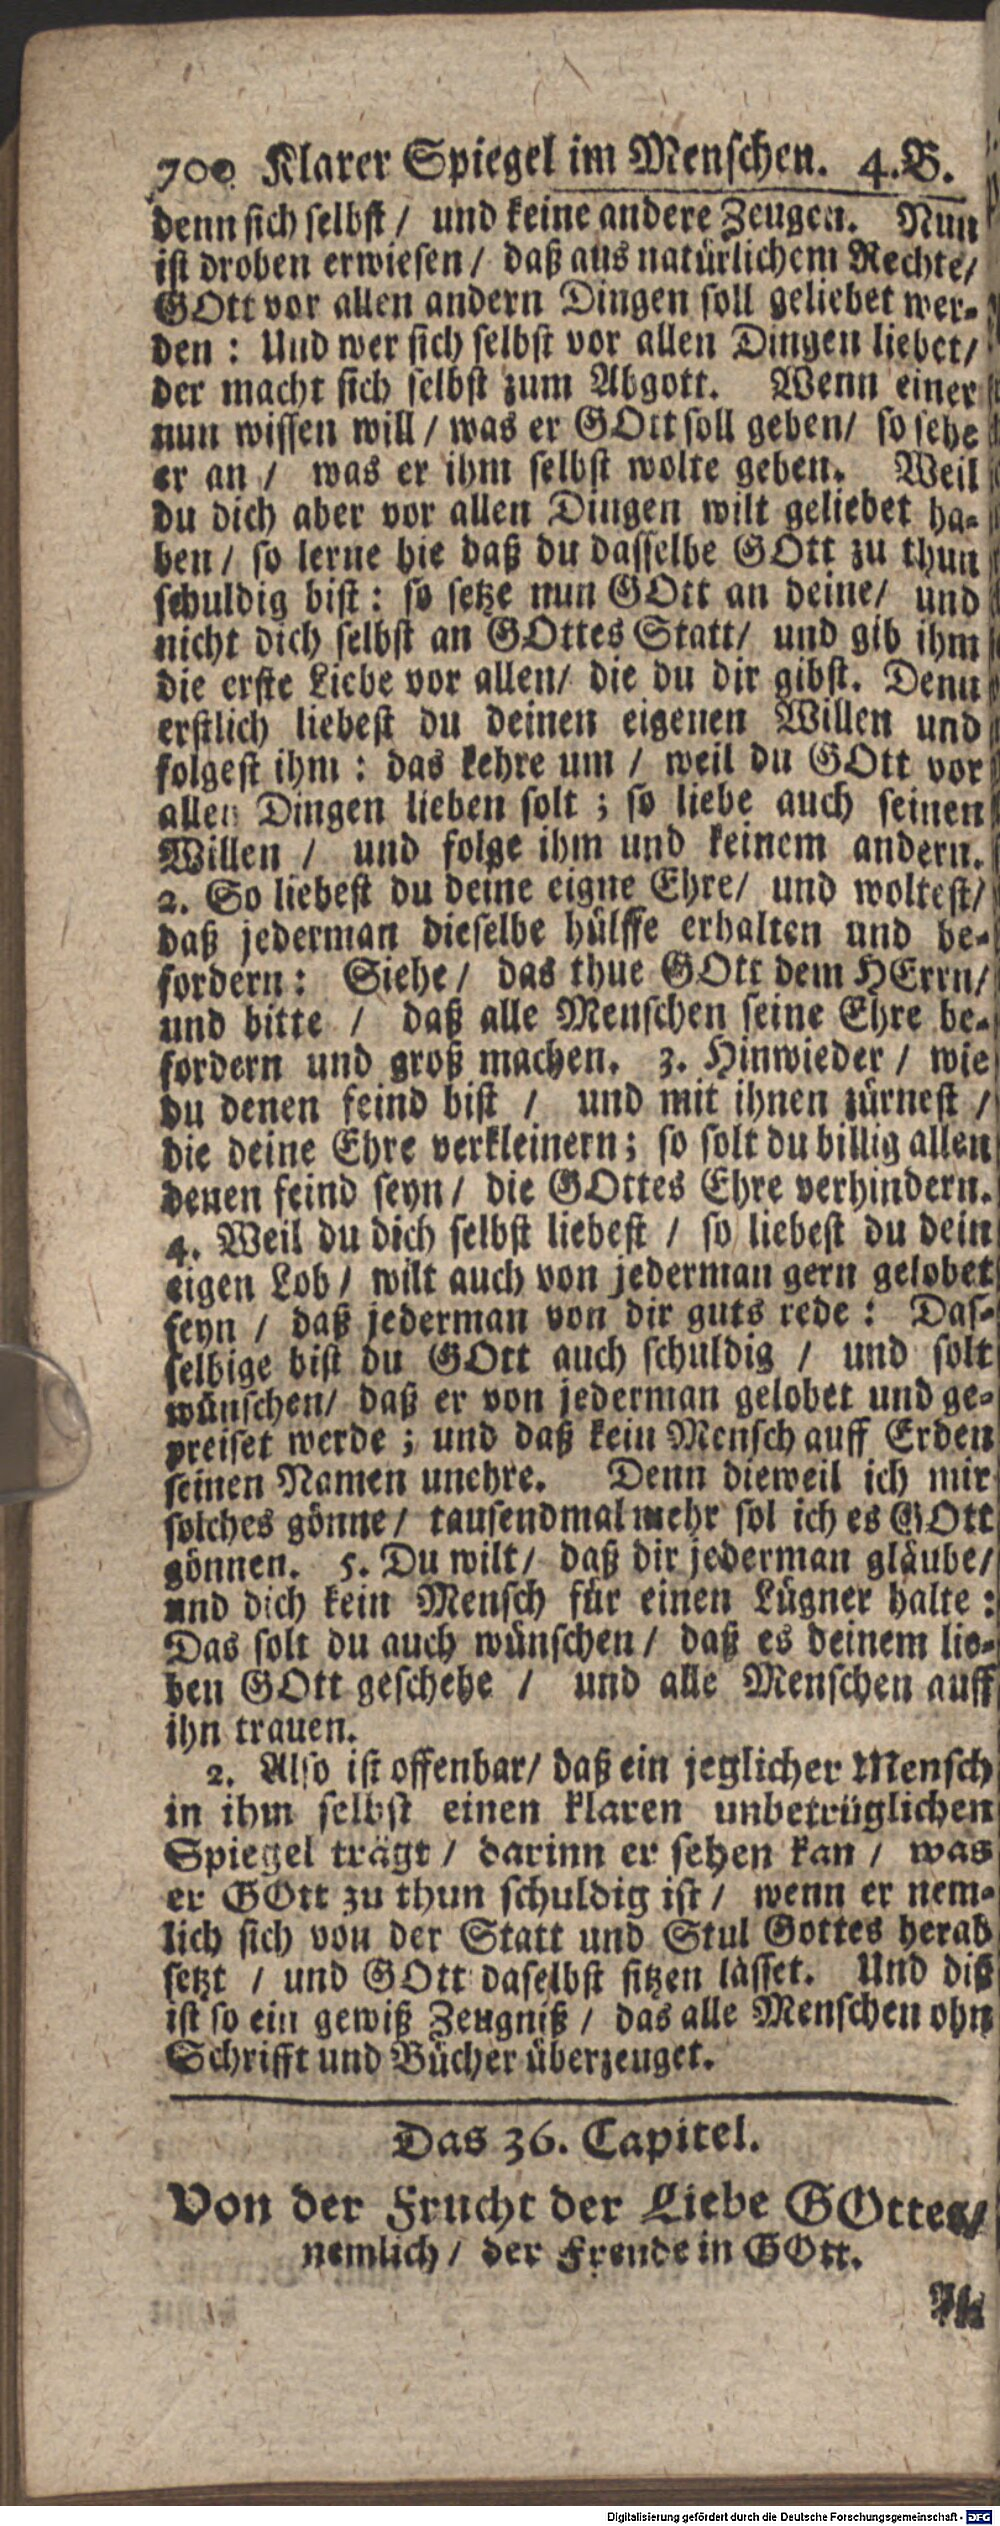 700 Klarer Spiegel im Menschen. 4.B.
denn sich selbst / und keine andere Zeugen. Nun
ist droben erwiesen / daß aus natürlichem Rechte /
GOtt vor allen andern Dingen soll geliebet wer-
den : Und wer sich selbst vor allen Dingen liebet /
der macht sich selbst zum Abgott. Wenn einer
nun wissen will / was er GOtt soll geben / so sehe
er an / was er ihm selbst wolte geben. Weil
du dich aber vor allen Dingen wilt geliebet ha-
ben / so lerne hie daß du dasselbe GOtt zu thun
schuldig bist : so setze nun GOtt an deine / und
nicht dich selbst an GOttes Statt / und gib ihm
die erste Liebe vor allen / die du dir gibst. Denn
erstlich liebest du deinen eigenen Willen und
folgest ihm : das kehre um / weil du GOtt vor
allen Dingen lieben solt ; so liebe auch seinen
Willen / und folge ihm und keinem andern.
2. So liebest du deine eigne Ehre / und woltest /
daß jederman dieselbe hülffe erhalten und be-
fordern : Siehe / das thue GOtt dem HErrn /
und bitte / daß alle Menschen seine Ehre be-
fordern und groß machen. 3. Hinwieder / wie
du denen feind bist / und mit ihnen zürnest /
die deine Ehre verkleinern ; so solt du billig allen
denen feind seyn / die GOttes Ehre verhindern.
4. Weil du dich selbst liebest / so liebest du dein
eigen Lob / wilt auch von jederman gern gelobet
seyn / daß jederman von dir guts rede : Das-
selbige bist du GOtt auch schuldig / und solt
wünschen / daß er von jederman gelobet und ge-
preiset werde ; und daß kein Mensch auff Erden
seinen Namen unehre. Denn dieweil ich mir
solches gönne / tausendmal mehr sol ich es GOtt
gönnen. 5. Du wilt / daß dir jederman gläube /
und dich kein Mensch für einen Lügner halte :
Das solt du auch wünschen / daß es deinem lie-
ben GOtt geschehe / und alle Menschen auff
ihn trauen.
2. Also ist offenbar / daß ein jeglicher Mensch
in ihm selbst einen klaren unbetrüglichen
Spiegel trägt / darinn er sehen kan / was
er GOtt zu thun schuldig ist / wenn er nem-
lich sich von der Statt und Stul Gottes herab
setzt / und GOtt daselbst sitzen lässet. Und diß
ist so ein gewiß Zeugniß / das alle Menschen ohn
Schrifft und Bücher überzeuget.
Das 36. Capitel.
Von der Frucht der Liebe GOttes /
nemlich / der Freude in GOtt.
Digitalisierung gefördert durch die Deutsche Forschungsgemeinschaft - DFG